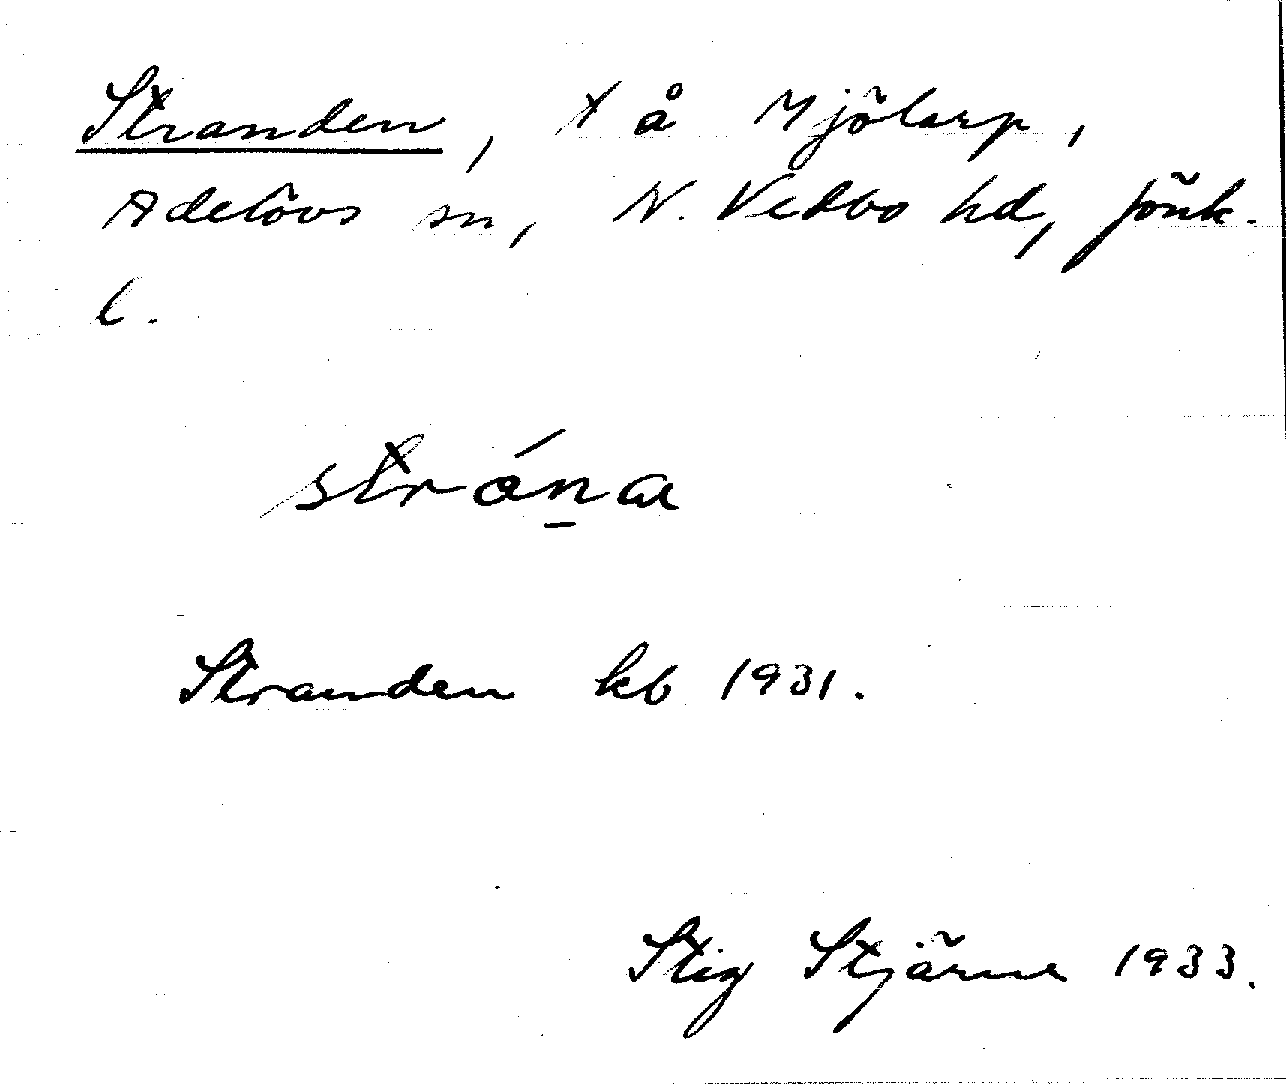 Stranden, X å Mjölarp,
Adelövs sn, N. Vedbo hd, Jönk.
l.
strána
Stranden kb 1931.
Stig Stjärne 1933.